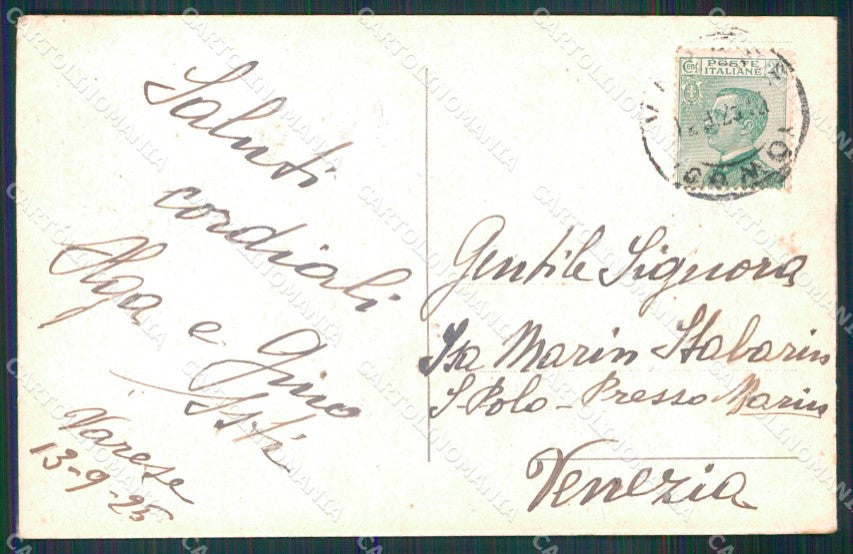 Saluti
cordiali
Olga e Gino
Varese
13-9-25
POSTE
ITALIANE
Gentile Signora
Isa Marin Stabarin
S. Polo - Presso Marin
Venezia
CARTOLINOMANIA